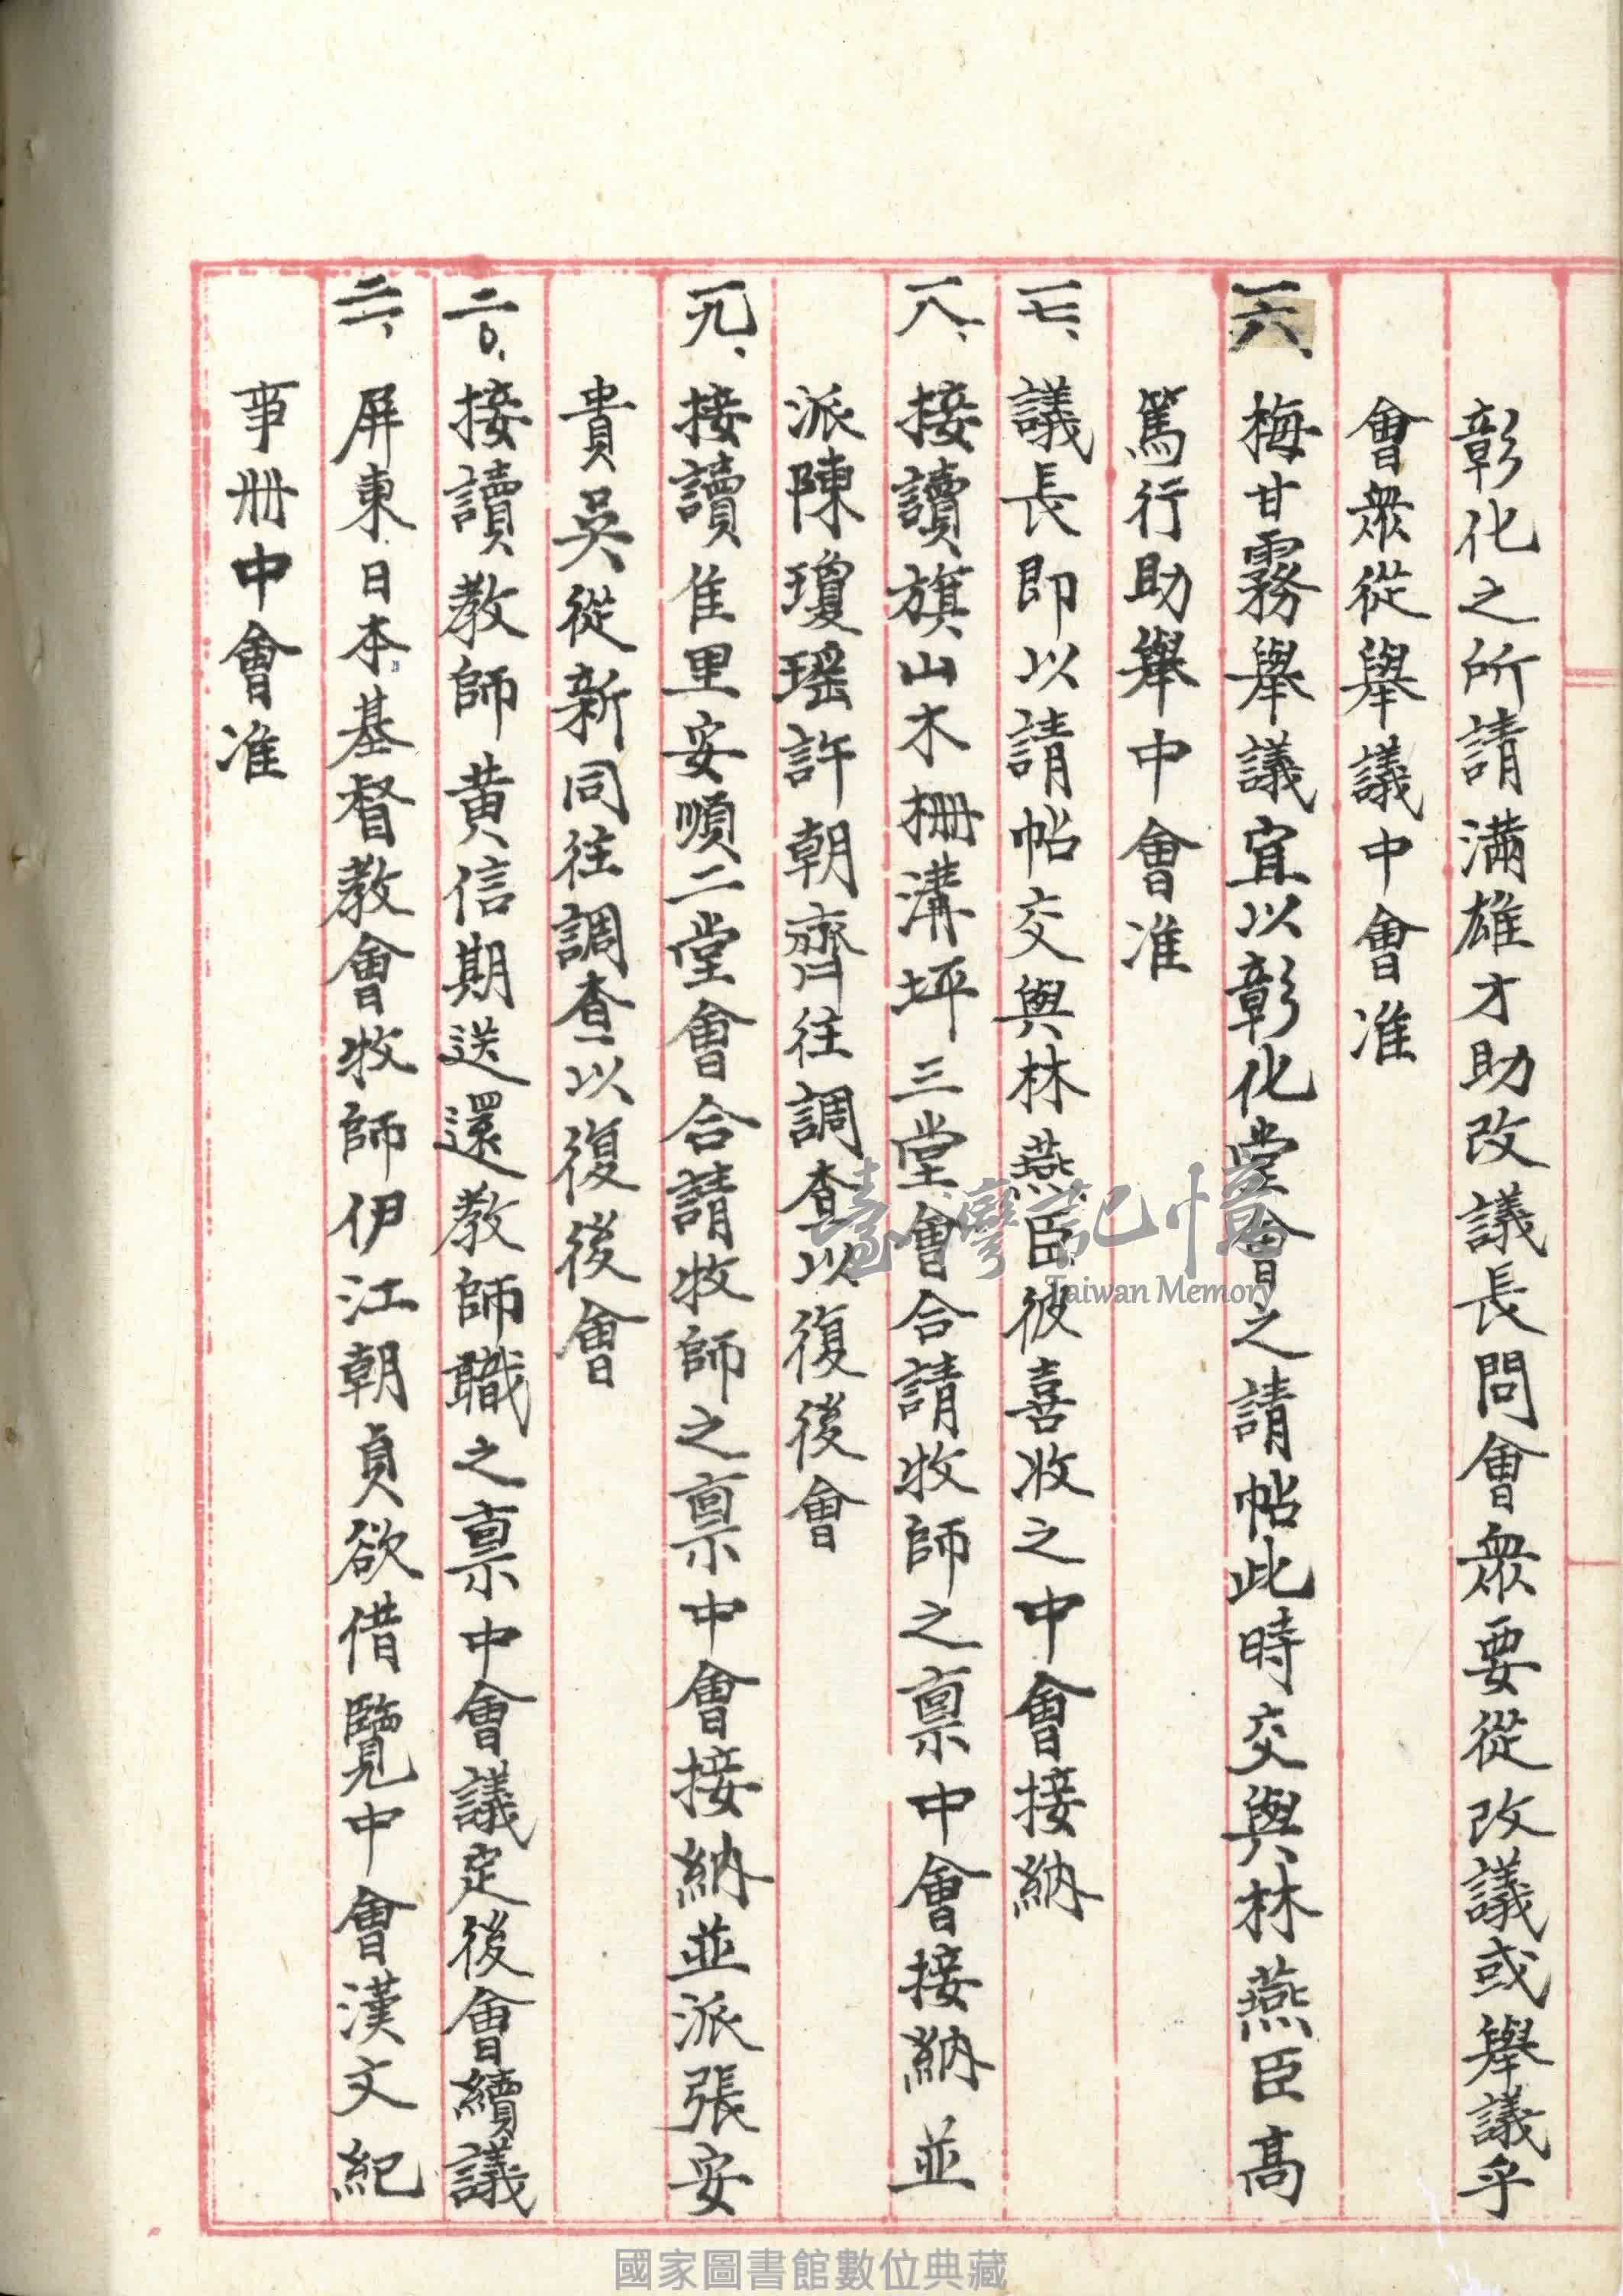 彰化之所請滿雄才助改議長問會衆要從改議或舉議乎
會衆從舉議中會准
一六、梅甘霧舉議宜以彰化堂會之請帖此時交與林燕臣高
篤行助舉中會准
一七、議長即以請帖交與林燕臣彼喜收之中會接納
一八、接讀旗山木柵溝坪三堂會合請牧師之禀中會接納並
派陳瓊瑤許朝齊往調查以復後會
一九、接讀隹里安順二堂會合請牧師之禀中會接納並派張安
貴吳從新同往調查以復後會
二〇、接讀教師黃信期送還教師職之禀中會議定後會續議
二一、屏東日本基督教會牧師伊江朝貞欲借覽中會漢文紀
事冊中會准
臺灣記憶
Taiwan Memory
國家圖書館數位典藏